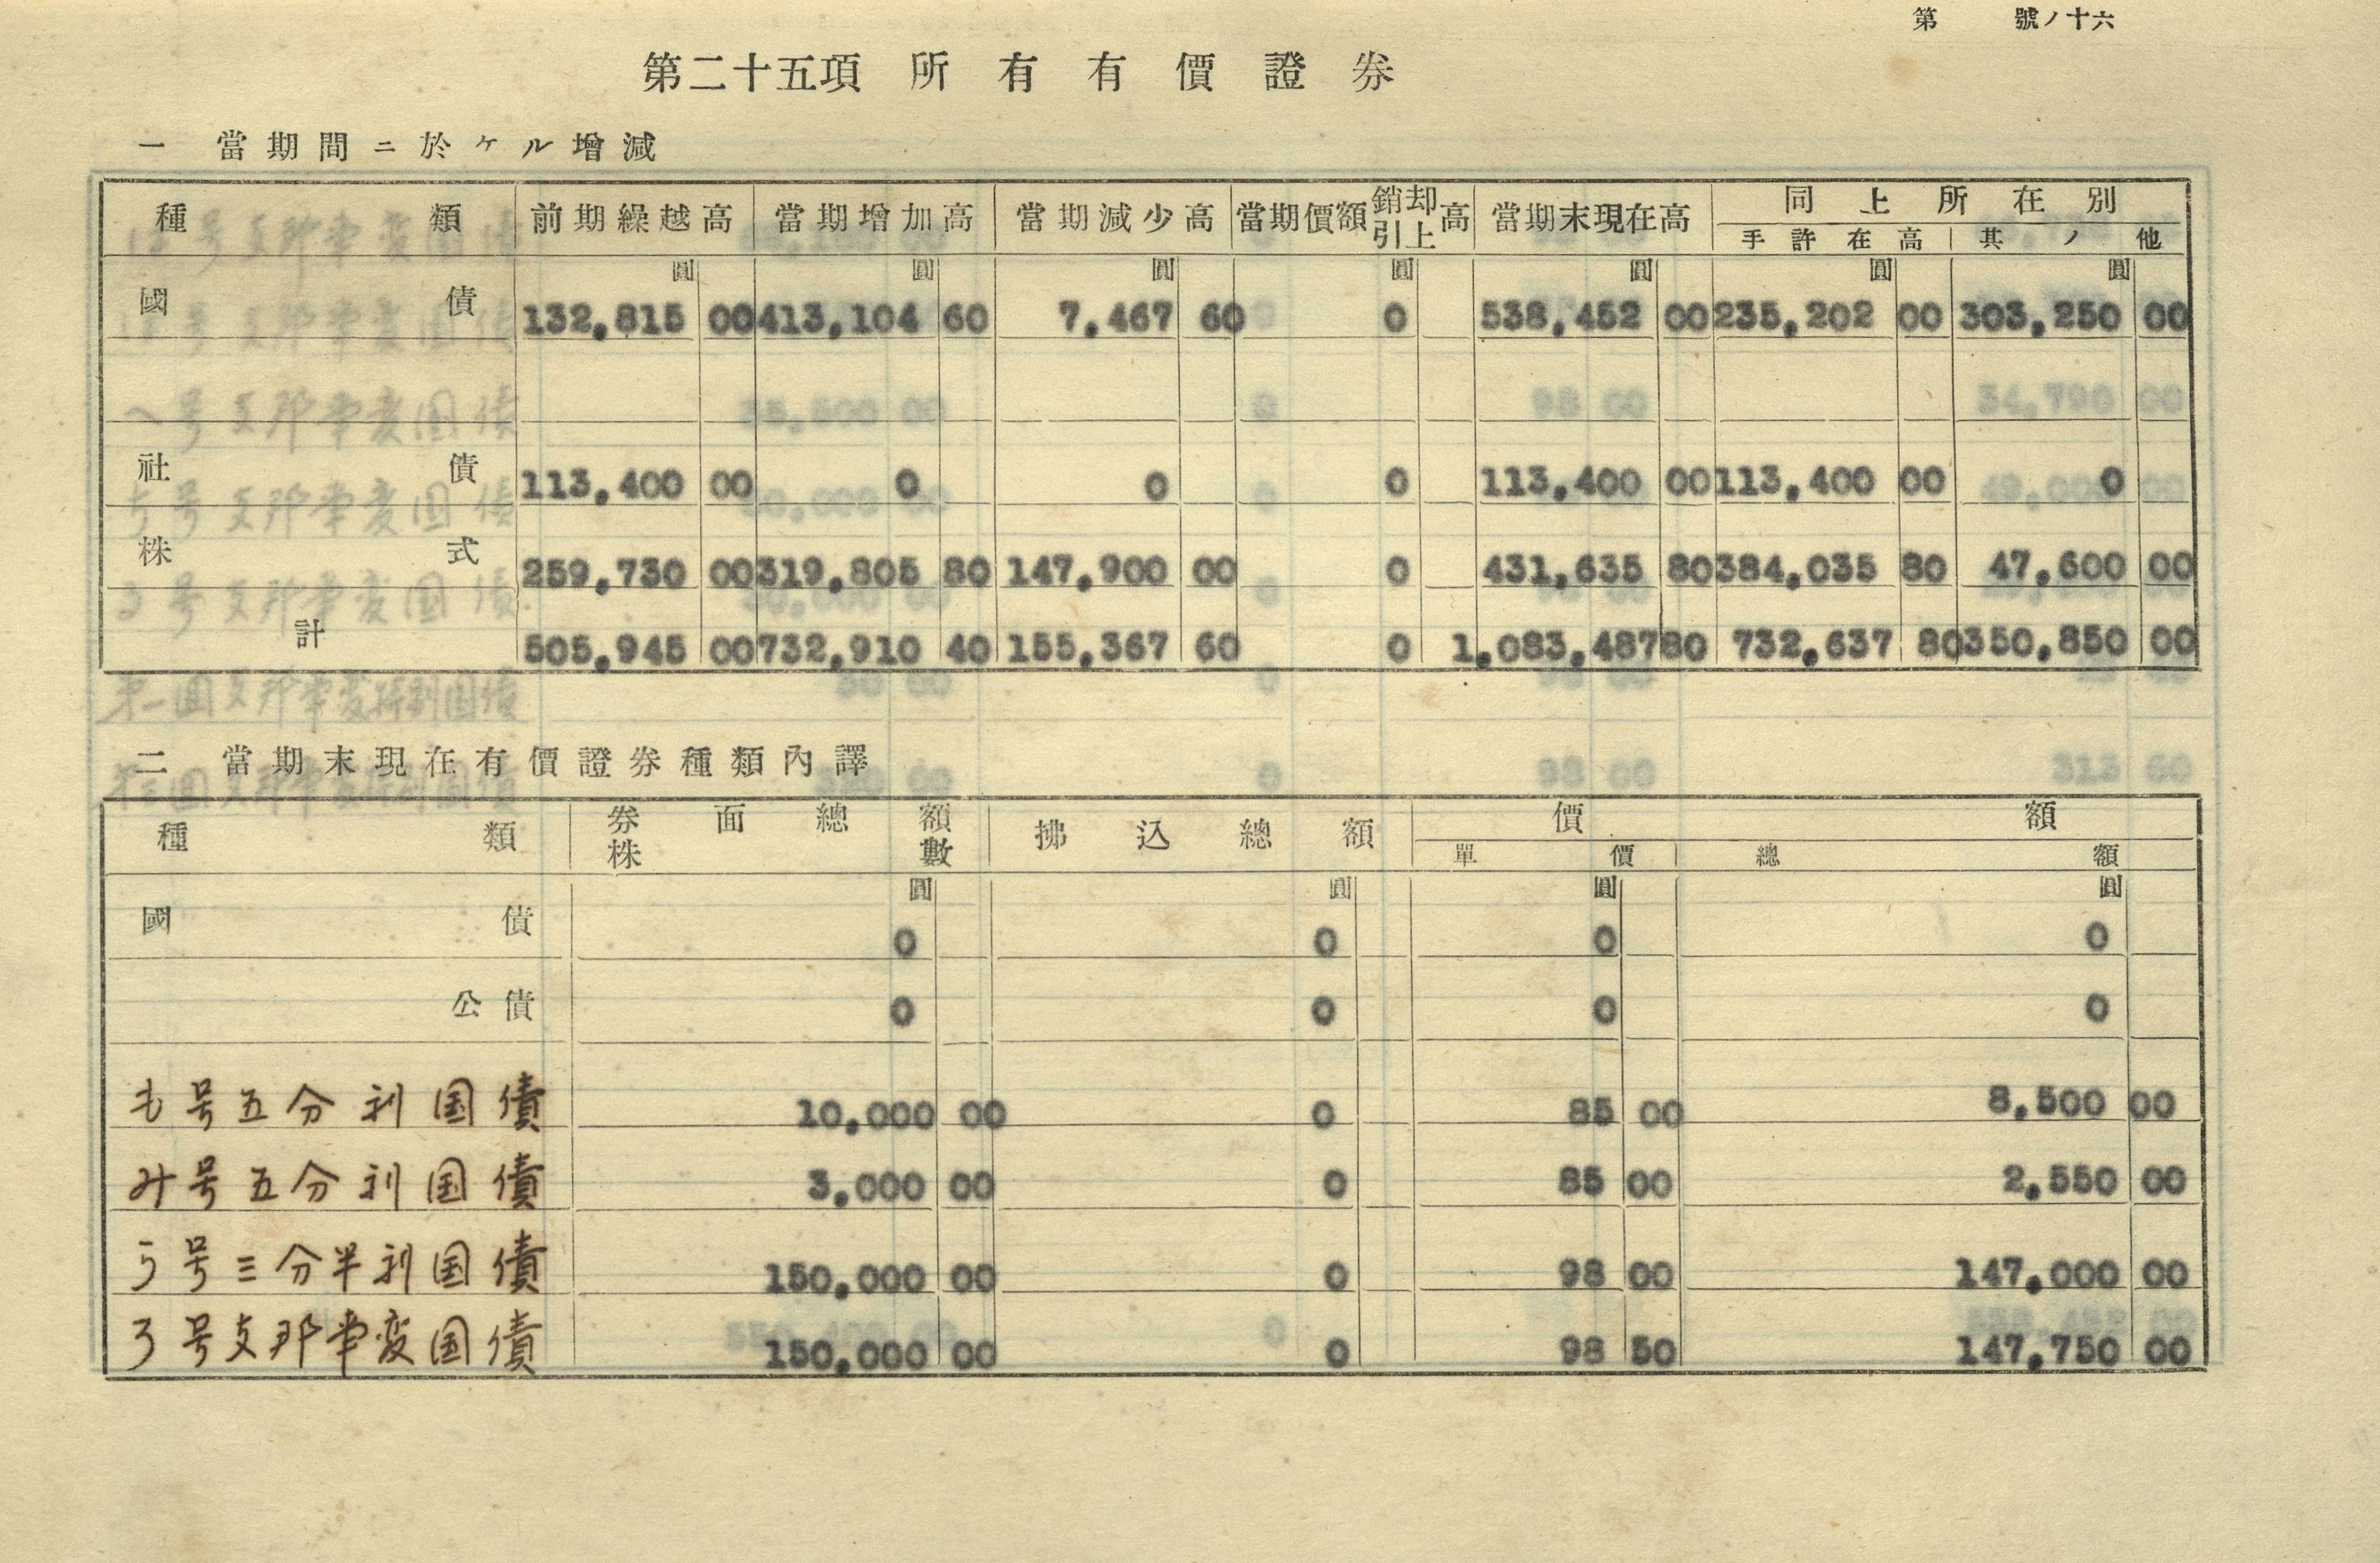 第 號ノ十六
第二十五項 所有有價證券
一 當期間ニ於ケル增減
種類 前期繰越高 當期增加高 當期減少高 當期價額銷却引上高 當期末現在高 同上所在別
手許在高 其ノ他
圓 圓 圓 圓 圓 圓 圓
國債 132,815 00 413,104 60 7,467 60 0 538,452 00 235,202 00 303,250 00
社債 113,400 00 0 0 0 113,400 00 113,400 00 0
株式 259,730 00 319,805 80 147,900 00 0 431,635 80 384,035 80 47,600 00
計 505,945 00 732,910 40 155,367 60 0 1,083,487 80 732,637 80 350,850 00
二 當期末現在有價證券種類內譯
種類 券面總額 株數 拂込總額 價額
單價 總額
圓 圓 圓 圓
國債 0 0 0 0
公債 0 0 0 0
も号五分利国債 10,000 00 0 85 00 8,500 00
み号五分利国債 3,000 00 0 85 00 2,550 00
う号三分半利国債 150,000 00 0 98 00 147,000 00
ろ号支那事変国債 150,000 00 0 98 50 147,750 00